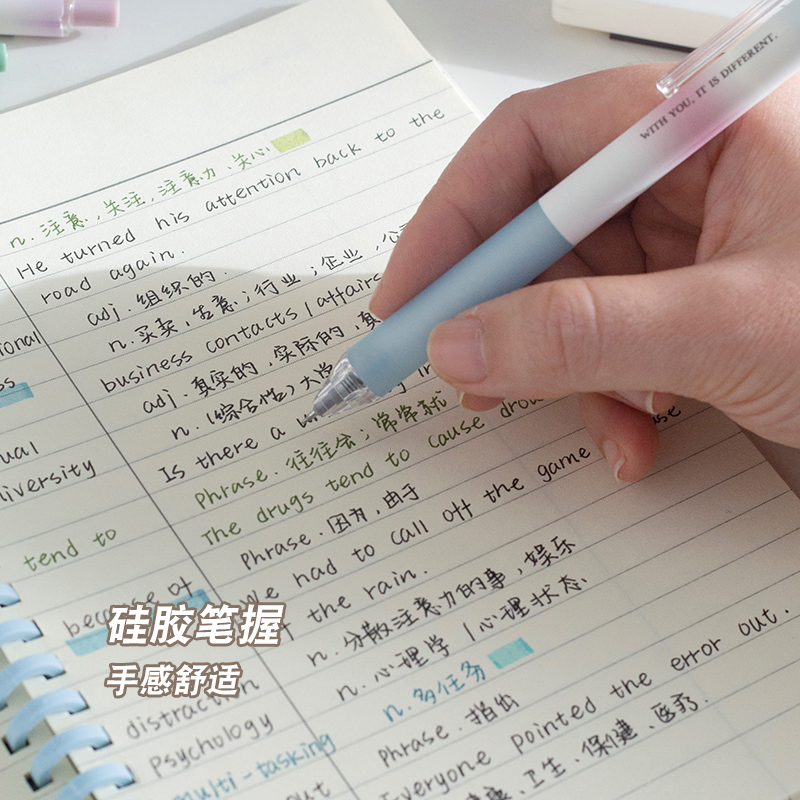 WITH YOU, IT IS DIFFERENT.
n. 注意,关注,注意力、关心
He turned his attention back to the
road again.
adj. 组织的.
n. 买卖,生意;行业;企业,
business contacts/affairs
adj. 真实的,实际的,真
n. (综合性)大学
Is there a
Phrase. 往往会;常常就
tend to
The drugs tend to cause
Phrase. 因为,由于
because of
We had to call off the game
the rain.
n. 分散注意力的事,娱乐
distraction
n. 心理学/心理状态
Psychology
n. 多任务
multi-tasking
Phrase. 指出
Everyone pointed the error out.
、卫生、保健、医疗.
硅胶笔握
手感舒适